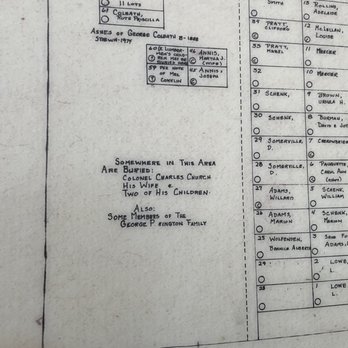 11 Lots
61 Colbath,
Ruth Priscilla
Ashes of George Colbath B-1888
Strewn-1974
60 2 Lumber-
men's child-
ren may be
buried here
46 Annis,
Martha J.
59 Per note
of Mrs
Conklin
45 Annis,
Joseph
Somewhere in This Area
Are Buried:
Colonel Charles Church
His Wife &
Two of His Children
Also:
Some Members of The
George P. Kington Family
Smith
13 Rollins,
Adelaide
34 Pratt,
Clifford
12 McLellan,
Louise
33 Pratt,
Mabel
11 Mercer
32
10 Mercer
31 Schenk,
9 Brown,
Ursula H.
30 Schenk,
8 Burman,
29 Somerville,
D.
7
28 Somerville,
D.
6
27 Adams,
Willard
5 Schenk,
William
26 Adams,
Marion
4 Schenk,
Marion
25
3
Adams,
24
2 Lowe,
L.
23
1 Lowe
L.